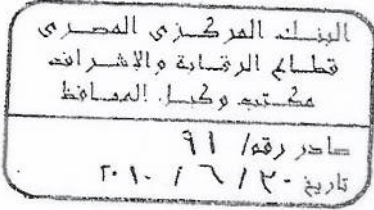 البنك المركزى المصرى
قطاع الرقابة والإشراف
مكتب وكيل المحافظ
صادر رقم/ ٩١
تاريخ ٣٠ / ٦ / ٢٠١٠